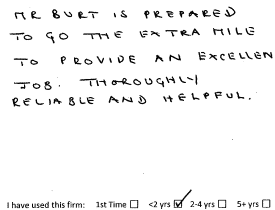 MR BURT IS PREPARED
TO GO THE EXTRA MILE
TO PROVIDE AN EXCELLEN
JOB. THOROUGHLY
RELIABLE AND HELPFUL.
I have used this firm: 1st Time ☐ <2 yrs ☑ 2-4 yrs ☐ 5+ yrs ☐